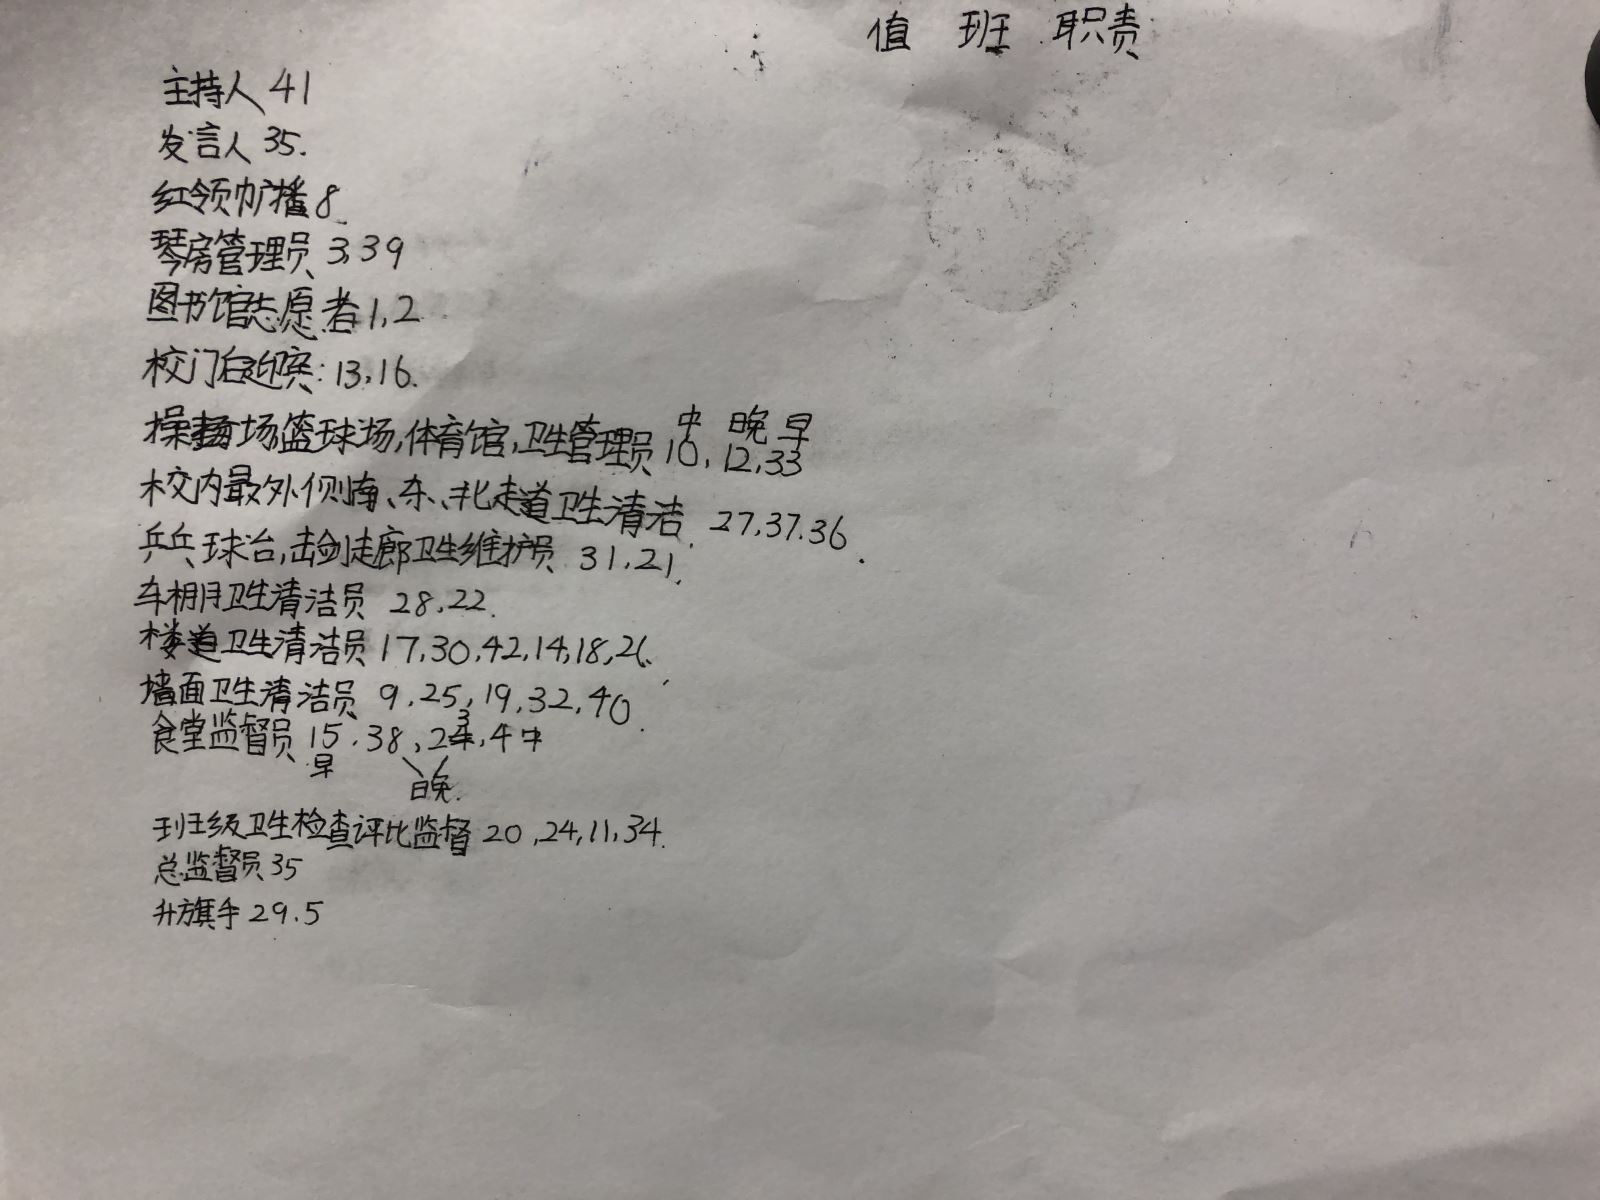 值 班 职责
主持人 41
发言人 35.
红领巾广播 8
琴房管理员 3,39
图书馆志愿者 1,2
校门白迎宾: 13,16.
中 晚 早
操场,篮球场,体育馆,卫生管理员 10, 12, 33
校内最外侧南、东、北走道卫生清洁 27,37.36.
乒乓球台,击剑走廊卫生维护员 31,21.
车棚卫生清洁员 28,22.
楼道卫生清洁员 17,30,42,14,18,26.
墙面卫生清洁员 9,25,19,32,40.
食堂监督员 15.38,23,4中
早
晚.
班级卫生检查评比监督 20,24,11,34.
总监督员 35
升旗手 29.5